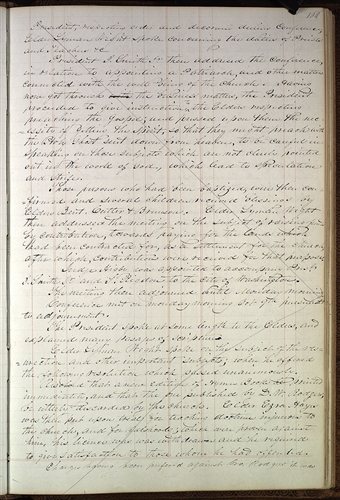 President, respecting order and decorum during Conference,
Elder Lyman Wight Spoke concerning the duties of Priests
and Teachers &c
President J. Smith Jr then addressed the Conference,
in relation to appointing a Patriarch, and other matters
connected with the well being of the Church. Having
now got through the business matters, the President
proceeded to give instruction to the Elders respecting
preaching the Gospel, and pressed upon them the ne-
cessity of getting the Spirit, so that they might preach with
the Holy Ghost sent down from heaven, to be careful in
Speaking on those subjects which are not clearly pointed
out in the word of God, which lead to Speculation
and Strife.
Those persons who had been baptized, were then con-
firmed and several children received blessings by
Elders Bent, Cutler & Brunson. Elder Lyman Wight
then addressed the meeting on the subject of raising funds
by Contribution, towards paying for the lands which
had been contracted for, as a settlement for the Church
after which, Contributions were received for that purpose
Judge Higbee was appointed to accompany Prest
J. Smith Jr and S. Rigdon to the city of Washington
The meeting then adjourned until monday morning
Conference met on monday morning Oct 7th pursuant
to adjournment.
The President Spoke at some length to the Elders, and
explained many passages of Scripture
Elder Lyman Wight Spoke on the subject of the resur-
rection and other important Subjects, when he offered
the following resolution which passed unanimously.
Resolved that a new edition of Hymn Books be printed
immediately, and that the one published by D. W. Rogers
be utterly discarded by this Church. Elder Ezra Hayes
was then put upon trial for teaching doctrine injurious to
the Church, and for falsehoods, which were proven against
him, his license was withdrawn and he required
to give satisfaction to those whom he had offended.
Charges having been preferred against Bro Rogers, it was